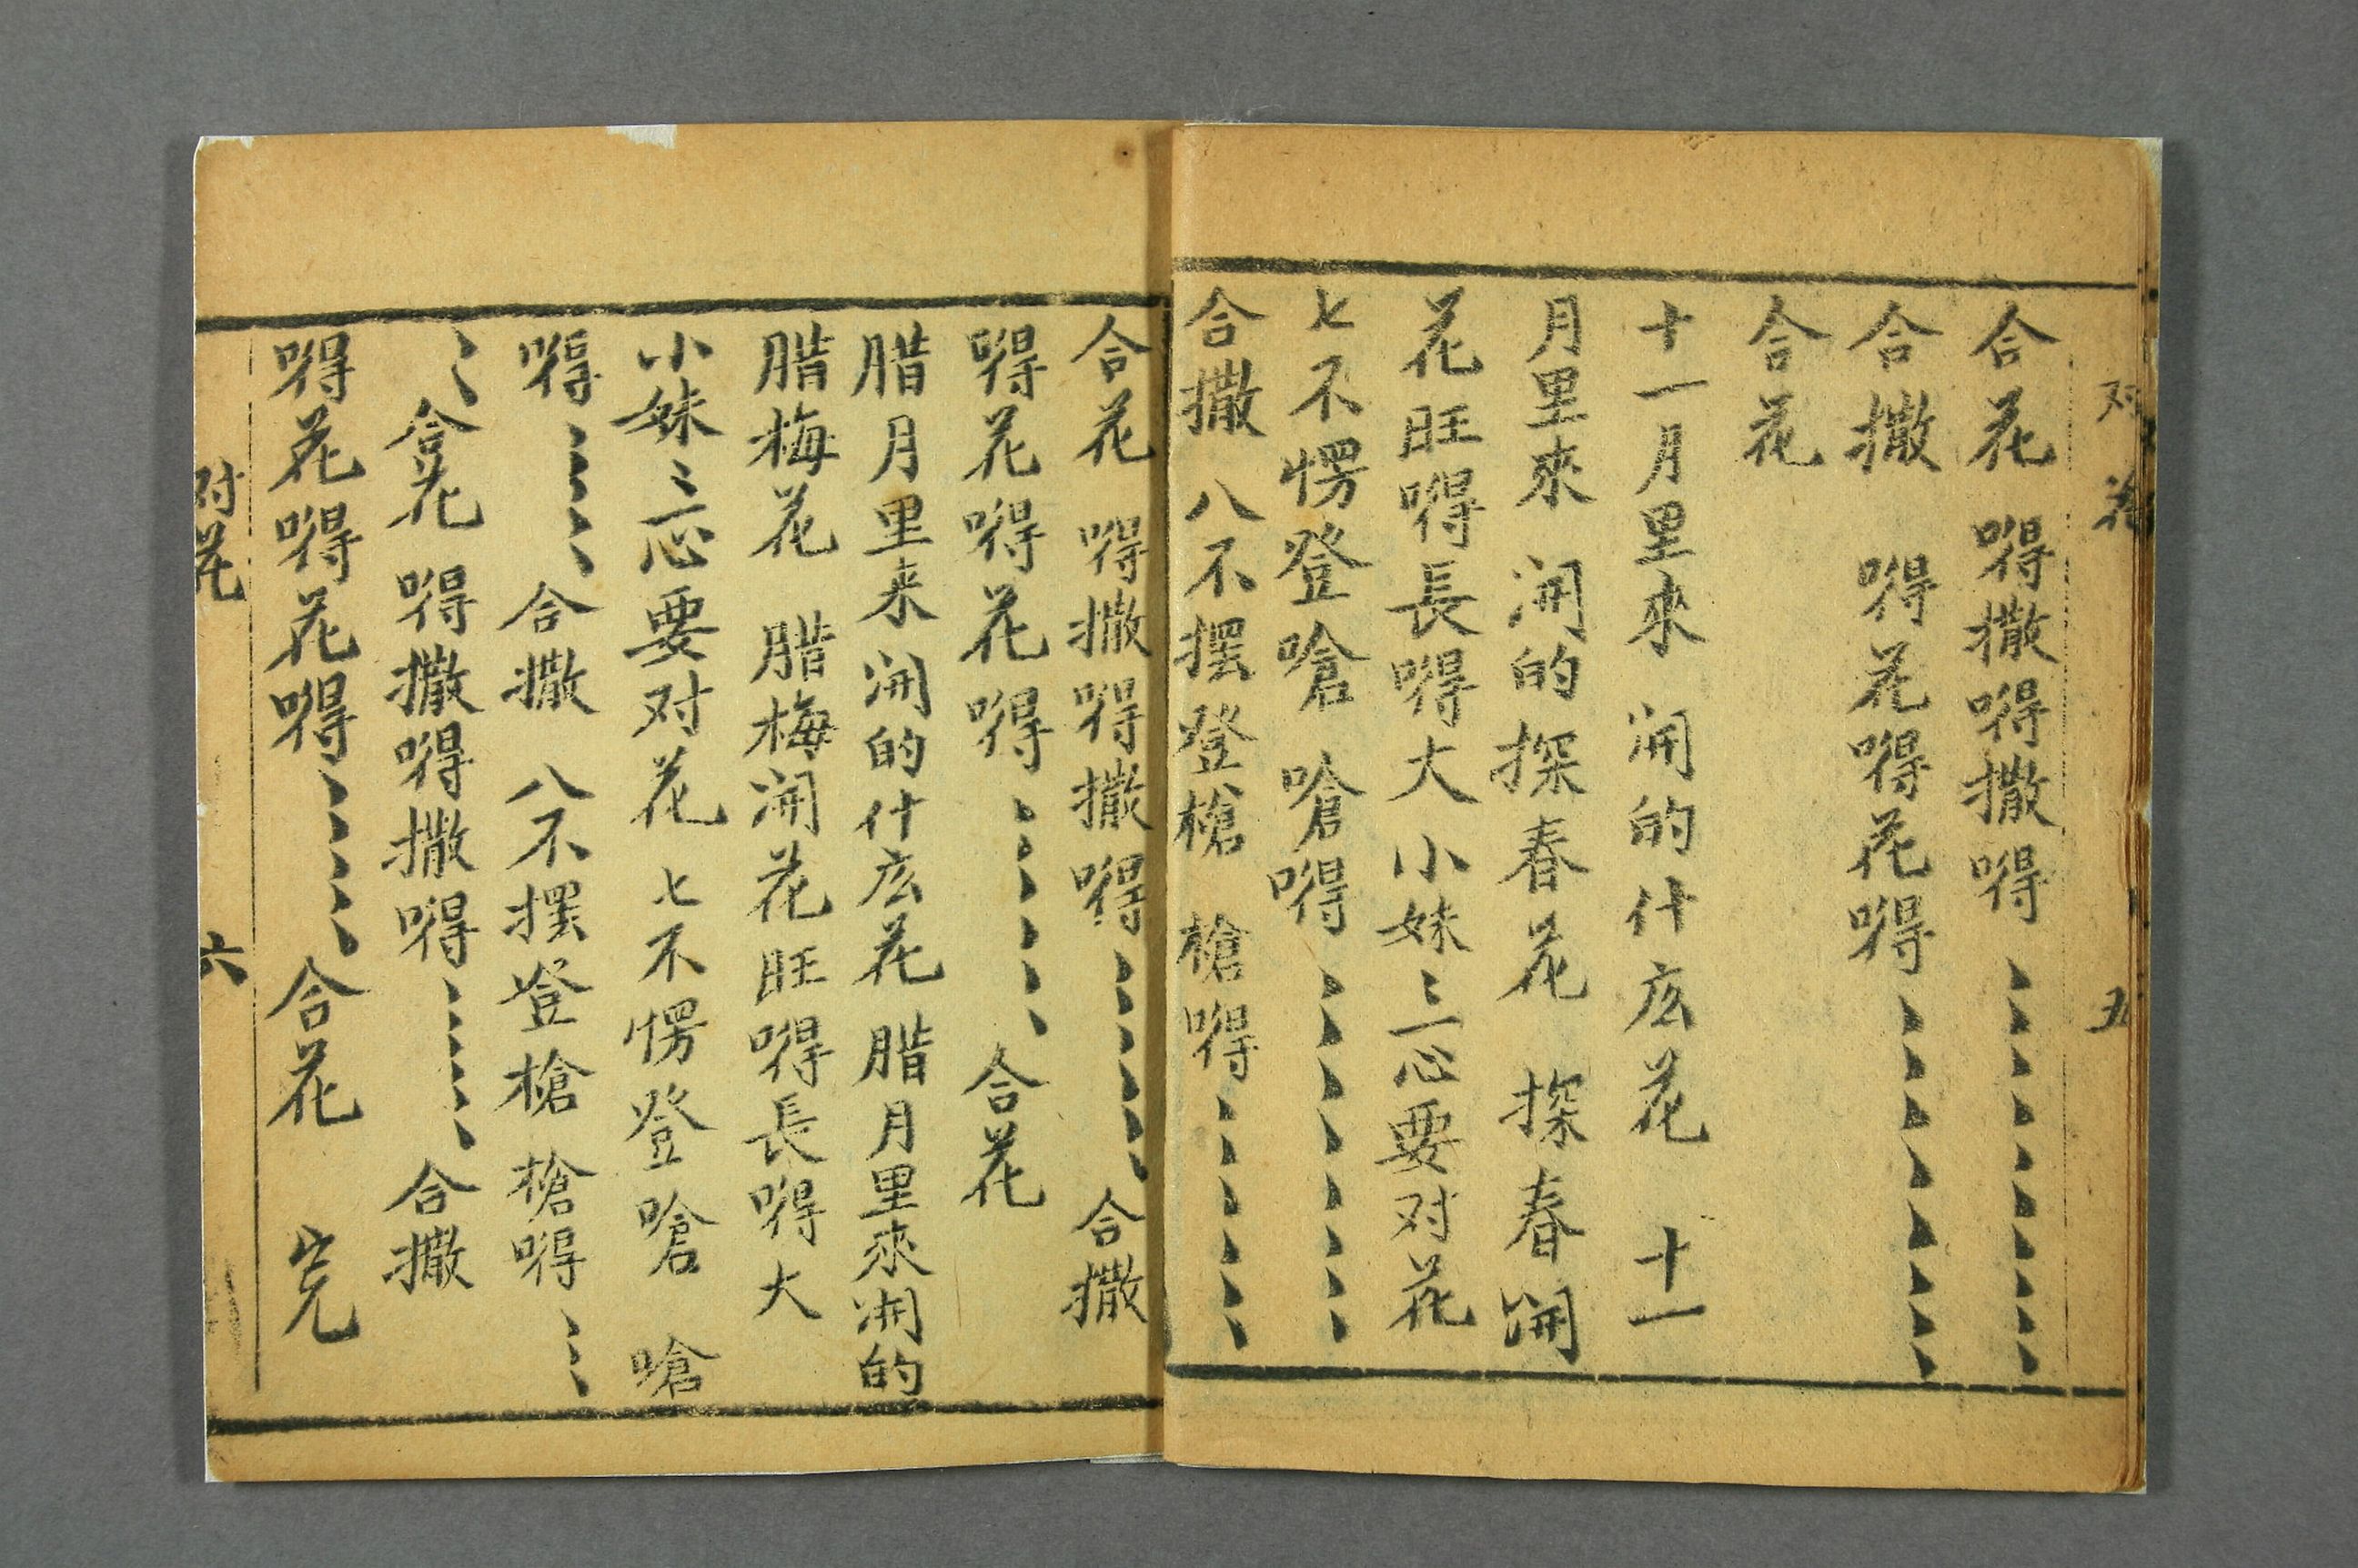 对花 五
合花 嘚撒嘚撒嘚⺀⺀⺀⺀⺀
合撒 嘚花嘚花嘚⺀⺀⺀⺀
合花
十一月里來 開的什庅花 十一
月里來 開的探春花 探春開
花旺嘚長嘚大 小妹⺀一心要对花
七不愣登嗆 嗆嘚⺀⺀⺀⺀
合撒 八不摆登槍 槍嘚⺀⺀⺀
合花 嘚撒嘚撒嘚⺀⺀⺀ 合撒
嘚花嘚花嘚⺀⺀⺀ 合花
腊月里来 開的什庅花 腊月里來開的
腊梅花 腊梅開花旺嘚長嘚大
小妹⺀一心要对花 七不愣登嗆 嗆
嘚⺀⺀ 合撒 八不摆登槍 槍嘚⺀⺀
⺀ 合花 嘚撒嘚撒嘚⺀⺀⺀ 合撒
嘚花嘚花嘚⺀⺀⺀ 合花 完
对花 六